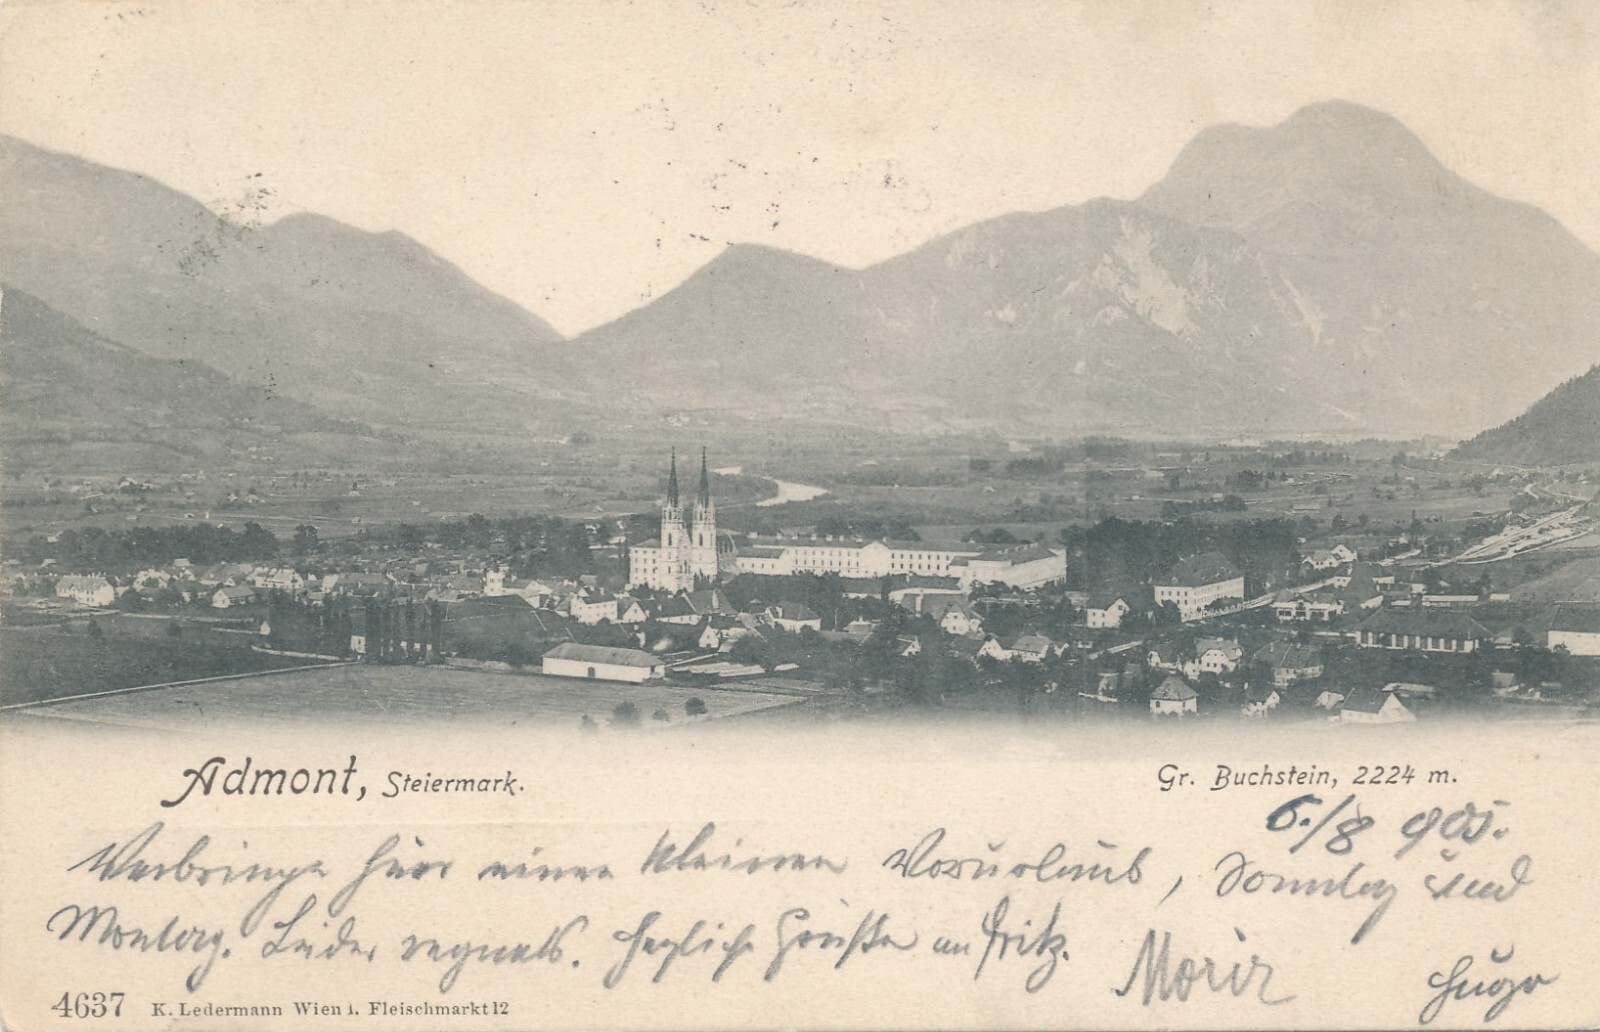 Admont, Steiermark.
Gr. Buchstein, 2224 m.
6./8 905.
Verbringe hier einen kleinen Vorurlaub, Sonntag und
Montag. Leider regnets. Herzliche Grüße an Fritz.
Moriz Hugo
4637 K. Ledermann Wien I. Fleischmarkt 12